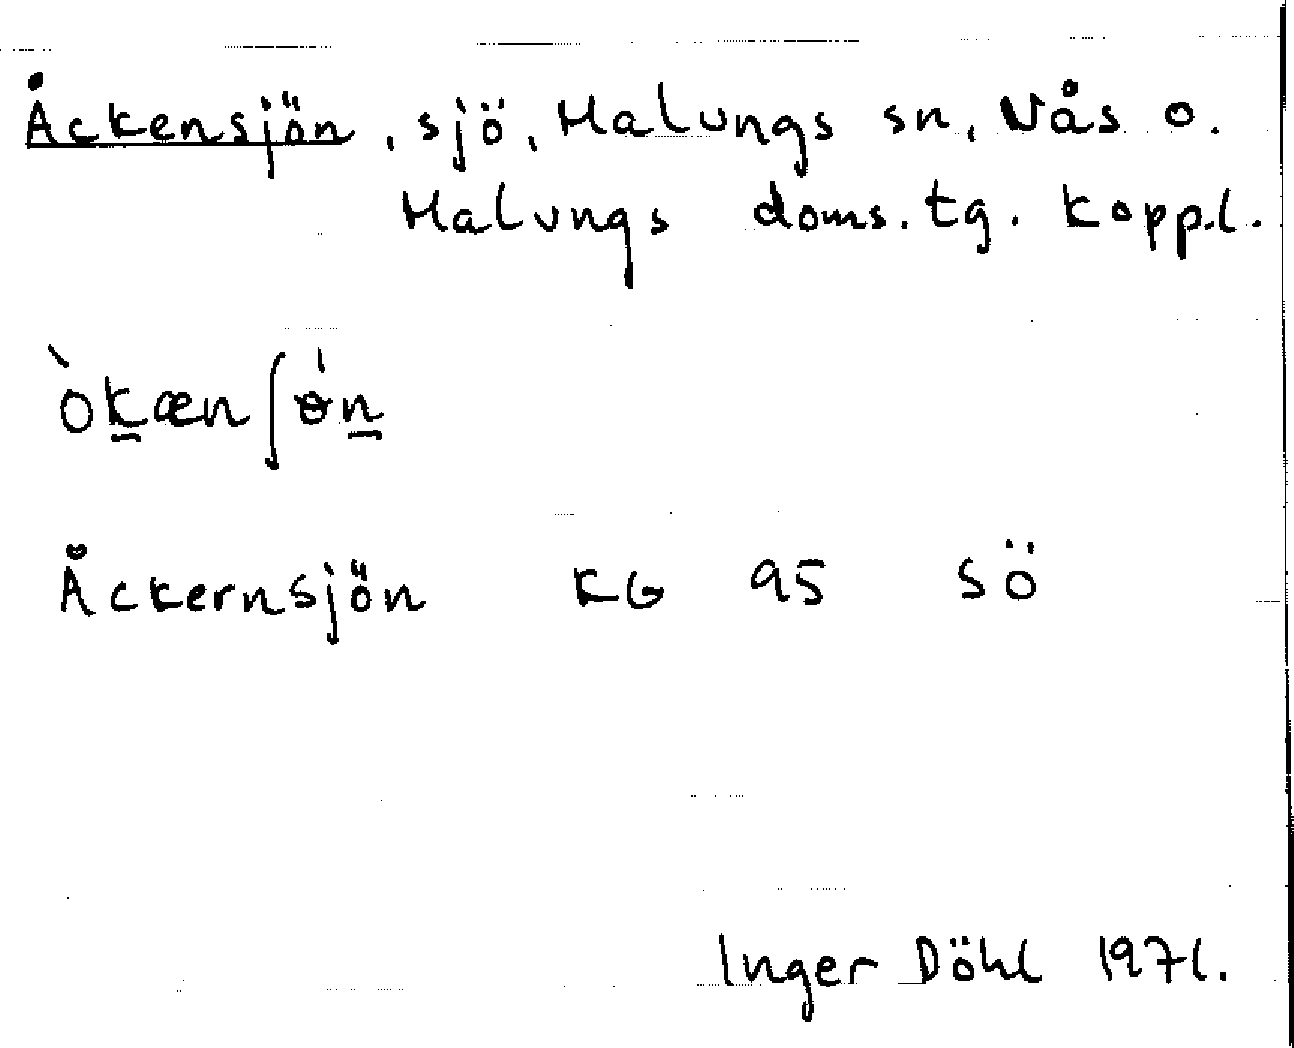 Åckensjön, sjö, Malungs sn, Nås o.
Malungs doms.tg. Kopp.l.
òk̲æn ʃɵ́n̲
Åckernsjön KG 95 SÖ
Inger Döhl 1971.